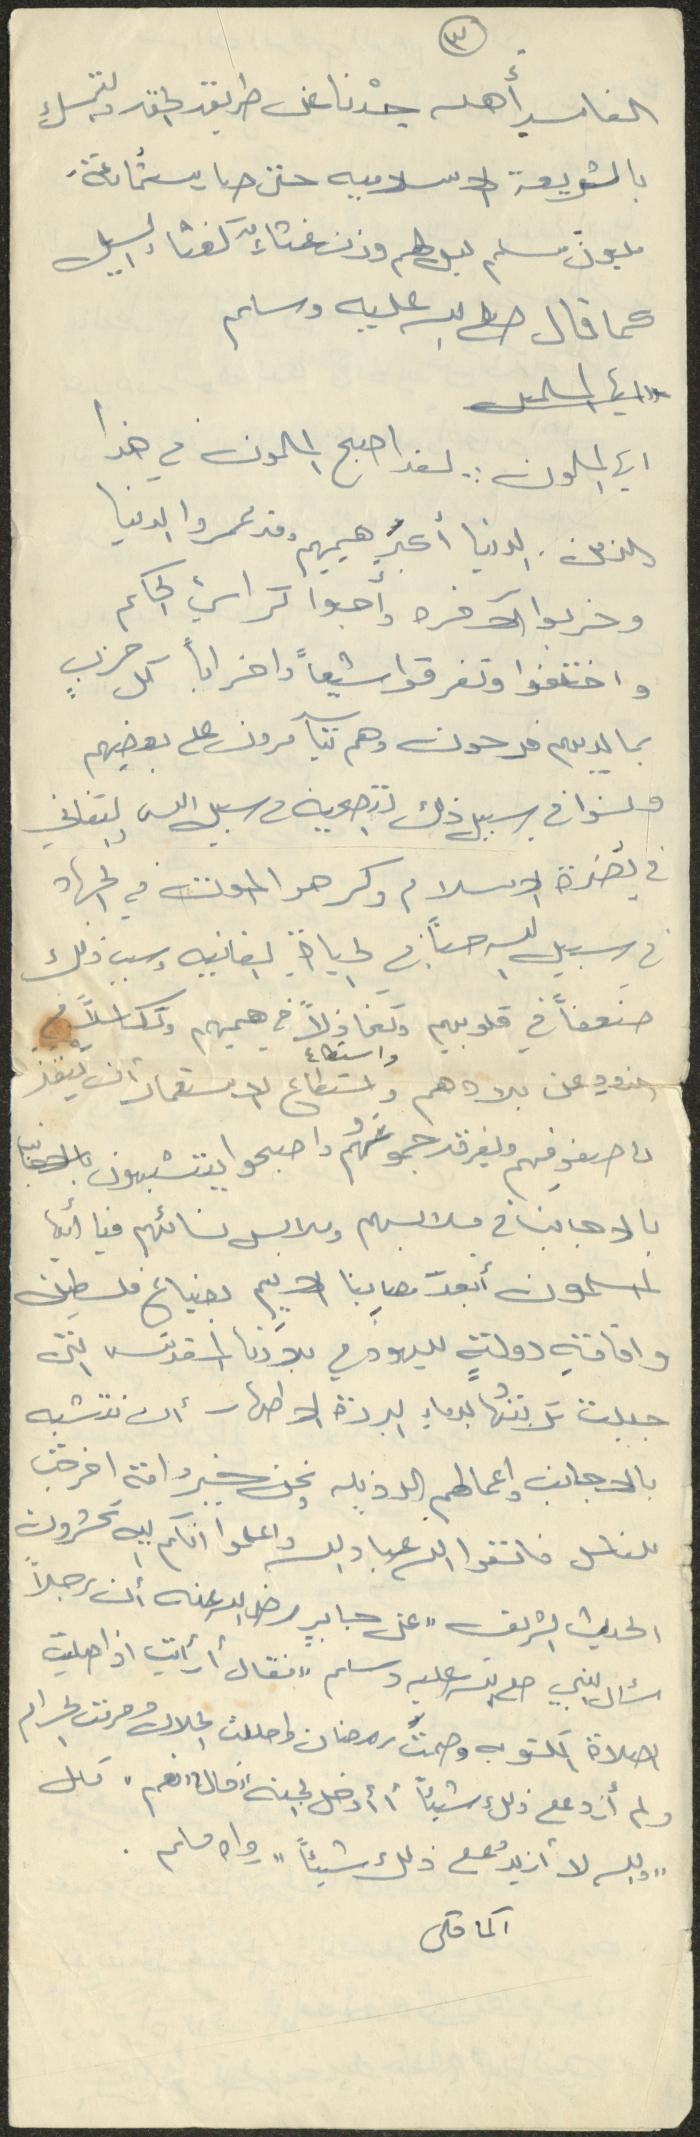 ٣
الفاسد أهله حدنا عن طريق الحق والتمسك
بالشريعة الاسلامية حتى صار ستمائة
مليون مسلم ليس لهم وزن غثاءٌ كغثاء السيل
كما قال صلى الله عليه وسلم
ايها المسلمون
ايها المسلمون :. لقد اصبح المسلمون في هذا
الزمن . الدنيا أكبر همهم وقد عمروا الدنيا
وخربوا الآخرة وأحبوا كراسي الحكم
واختلفوا وتفرقوا شيعاً واحزاباً كل حزبٍ
بما لديهم فرحون وهم يتآمرون على بعضهم
ونسوا في سبيل ذلك التضحية في سبيل الله والتفاني
في نصرة الاسلام وكرهوا الموت في الجهاد
في سبيل الله حباً في الحياة الفانيه وسبب ذلك
ضعفاً في قلوبهم وتخاذلاً في هممهم وتكاسلاً في
الذود عن بلادهم واستطاع الاستعمار أن ينفذ
واستطاع
الى صفوفهم ويفرق جموعهم واصبحوا يتشبهون بالاجانب
بالاجانب في ملابسهم وملابس نسائهم فيا أيها
المسلمون أبعد مصابنا الاليم بضياع فلسطين
واقامة دولةٍ لليهود في بلادنا المقدسه التي
جبلت تربتها بدماء البررة الاطهار أن نتشبه
بالاجانب واعمالهم الرذيله ونحن خير امة اخرجت
للناس فاتقوا الله عباد الله واعلموا انكم اليه تحشرون
الحديث الشريف "عن جابرٍ رضي الله عنه أن رجلاً
سأل النبي صلى الله عليه وسلم "فقال أرأيت اذا صليت
الصلاة المكتوبه وصمت رمضان واحللت الحلال وحرمت الحرام
ولم أزد على ذلك شيئاً أأدخل الجنه "قال" "نعم" قال
"والله لا أزيد على ذلك شيئاً" رواه مسلم .